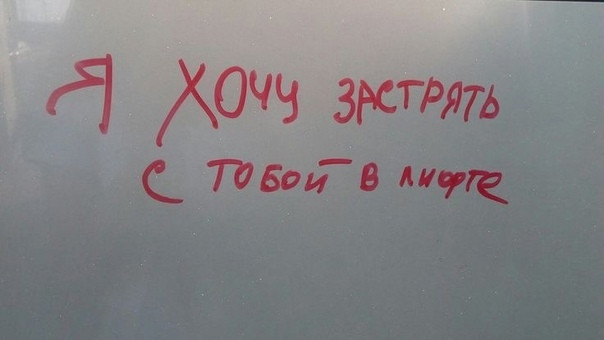 Я ХОЧУ ЗАСТРЯТЬ
С ТОБОЙ В лифте